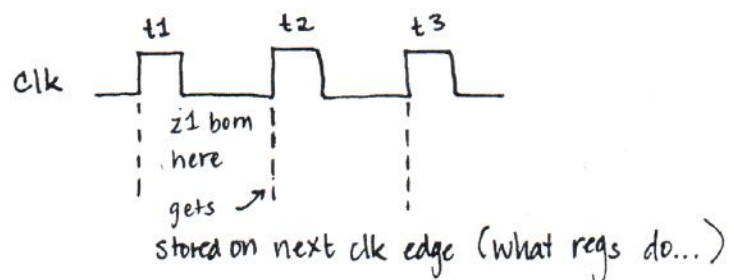 t1 t2 t3
Clk
z1 born
here
gets
stored on next clk edge (what regs do...)